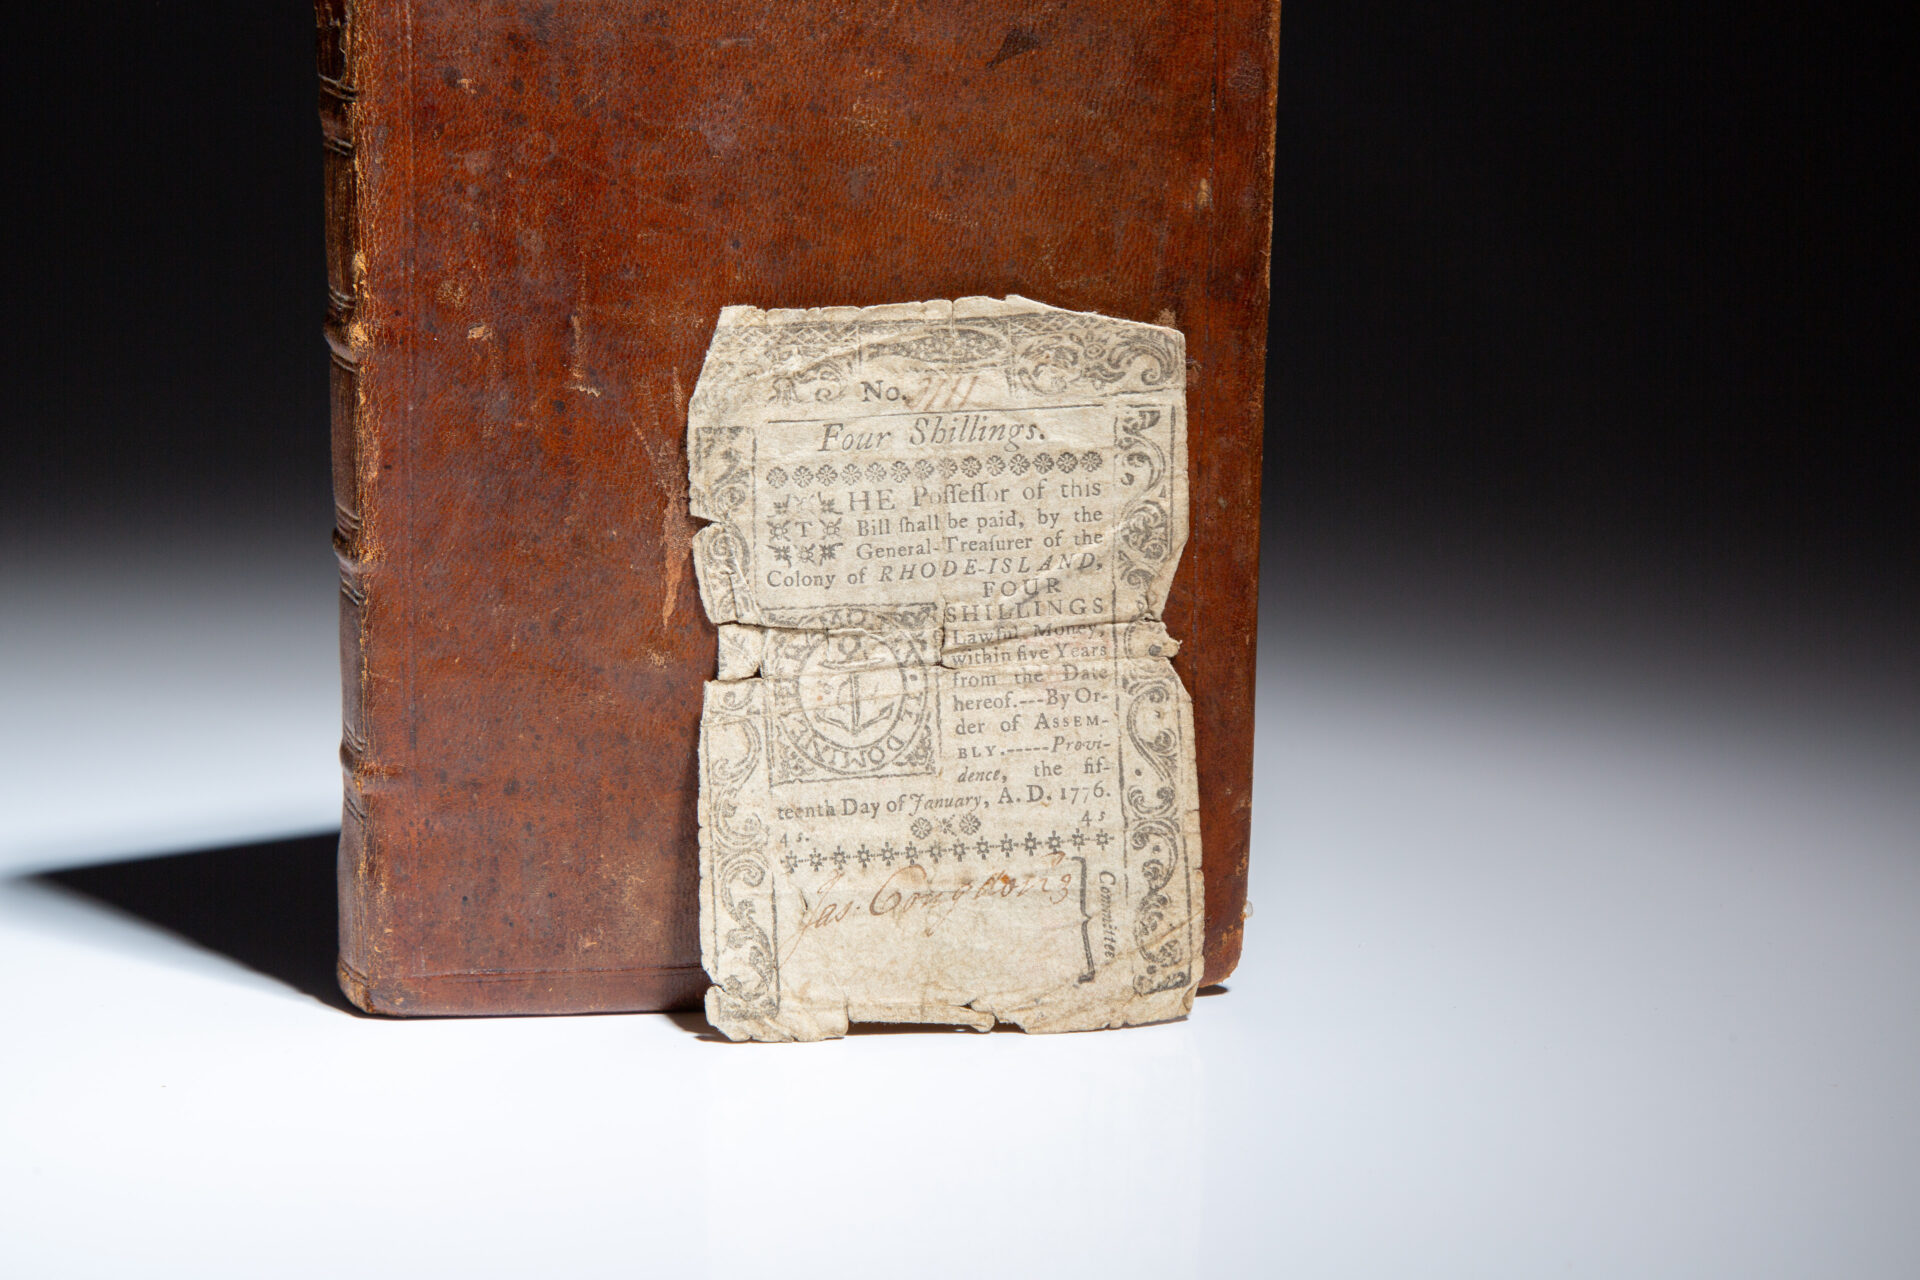 No. 
Four Shillings.
THE Poſſeſſor of this
Bill ſhall be paid, by the
General-Treaſurer of the
Colony of RHODE-ISLAND,
FOUR
SHILLINGS
Lawful Money,
within five Years
from the Date
hereof.---By Or-
der of ASSEM-
BLY.-----Provi-
dence, the fif-
teenth Day of January, A. D. 1776.
4 s. 4 s
DOMINE
Jas. Congdon 3
Committee.